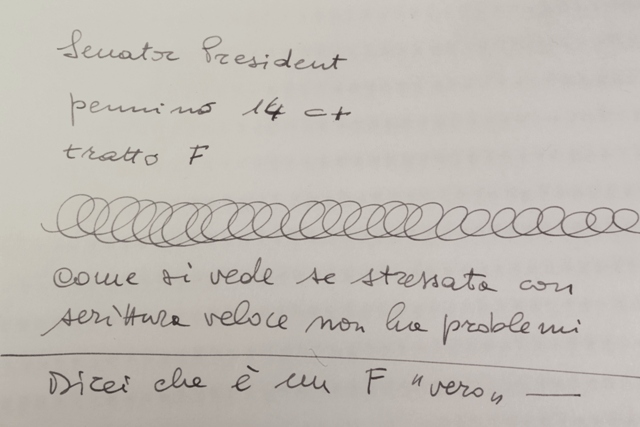 Senator President
pennino 14 ct
tratto F
Come si vede se stressata con
scrittura veloce non ha problemi
Direi che è un F "vero" —